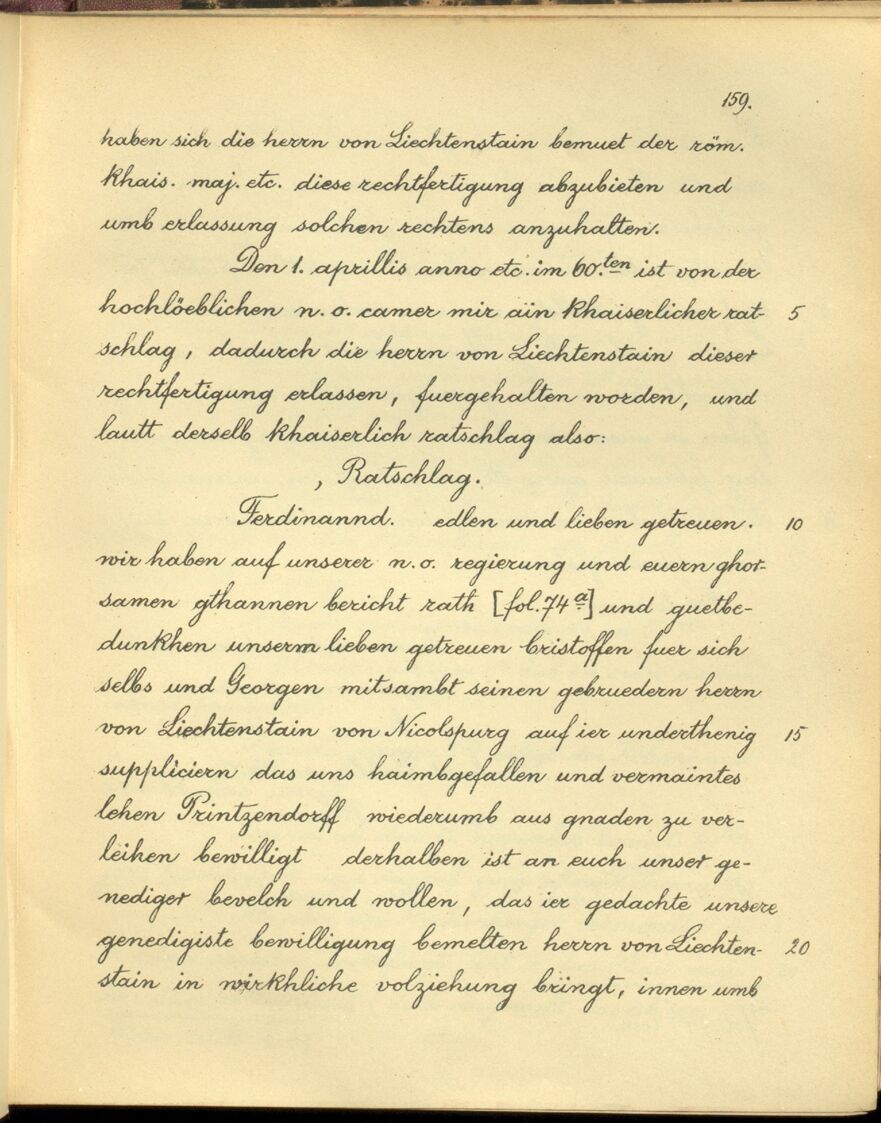 159.
haben sich die herrn von Liechtenstain bemuet der röm.
khais. maj. etc. diese rechtfertigung abzubieten und
umb erlassung solchen rechtens anzuhalten.
Den 1. aprillis anno etc. im 60.ten ist von der
hochlöeblichen n. o. camer mir ain khaiserlicher rat- 5
schlag, dadurch die herrn von Liechtenstain dieser
rechtfertigung erlassen, fuergehalten worden, und
lautt derselb khaiserlich ratschlag also:
, Ratschlag.
Ferdinannd. edlen und lieben getreuen. 10
wir haben auf unserer n. o. regierung und euern ghor-
samen gthannen bericht rath [fol. 74a] und guetbe-
dunkhen unserm lieben getreuen Cristoffen fuer sich
selbs und Georgen mitsambt seinen gebruedern herrn
von Liechtenstain von Nicolspurg auf ier underthenig 15
suppliciern das uns haimbgefallen und vermaintes
lehen Printzendorff wiederumb aus gnaden zu ver-
leihen bewilligt derhalben ist an euch unser ge-
nediger bevelch und wollen, das ier gedachte unsere
genedigiste bewilligung bemelten herrn von Liechten- 20
stain in wirkhliche volziehung bringt, innen umb